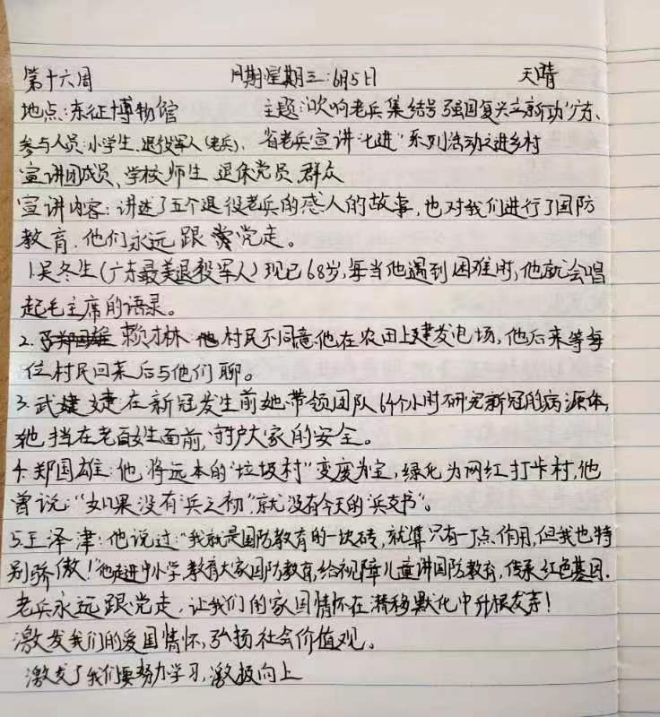 第十六周 日期:星期三:6月5日 天晴
地点:东征博物馆 主题:吹响老兵集结号 强国复兴立新功"广东、
参与人员:小学生、退役军人(老兵)、省老兵宣讲"七进"系列活动之进乡村
宣讲团成员、学校师生、退休党员、群众
宣讲内容:讲述了五个退役老兵的感人的故事,也对我们进行了国防
教育。他们永远跟党走。
1.吴冬生(广东最美退役军人)现已68岁,每当他遇到困难时,他就会唱
起毛主席的语录。
2.赖林:村民不同意他在农田上建发电场,他后来等每
位村民回来后与他们聊。
3.武婕:在新冠发生前她带领团队64个小时研究新冠的病源体,
她挡在老百姓面前,守护大家的安全。
4.郑国雄:他将远本的"垃圾村"变废为宝,绿化为网红打卡村,他
曾说:"如果没有兵之初"就没有今天的"兵支书"。
5.王泽津:他说过:"我就是国防教育的一块砖,就算只有一丁点作用,但我也特
别骄傲!"他走进中小学,教育大家国防教育,给视障儿童讲国防教育,传承红色基因.
老兵永远跟党走,让我们的家国情怀在潜移默化中升级发芽!
激发我们的爱国情怀,弘扬社会价值观。
激发了我们要努力学习,激极向上